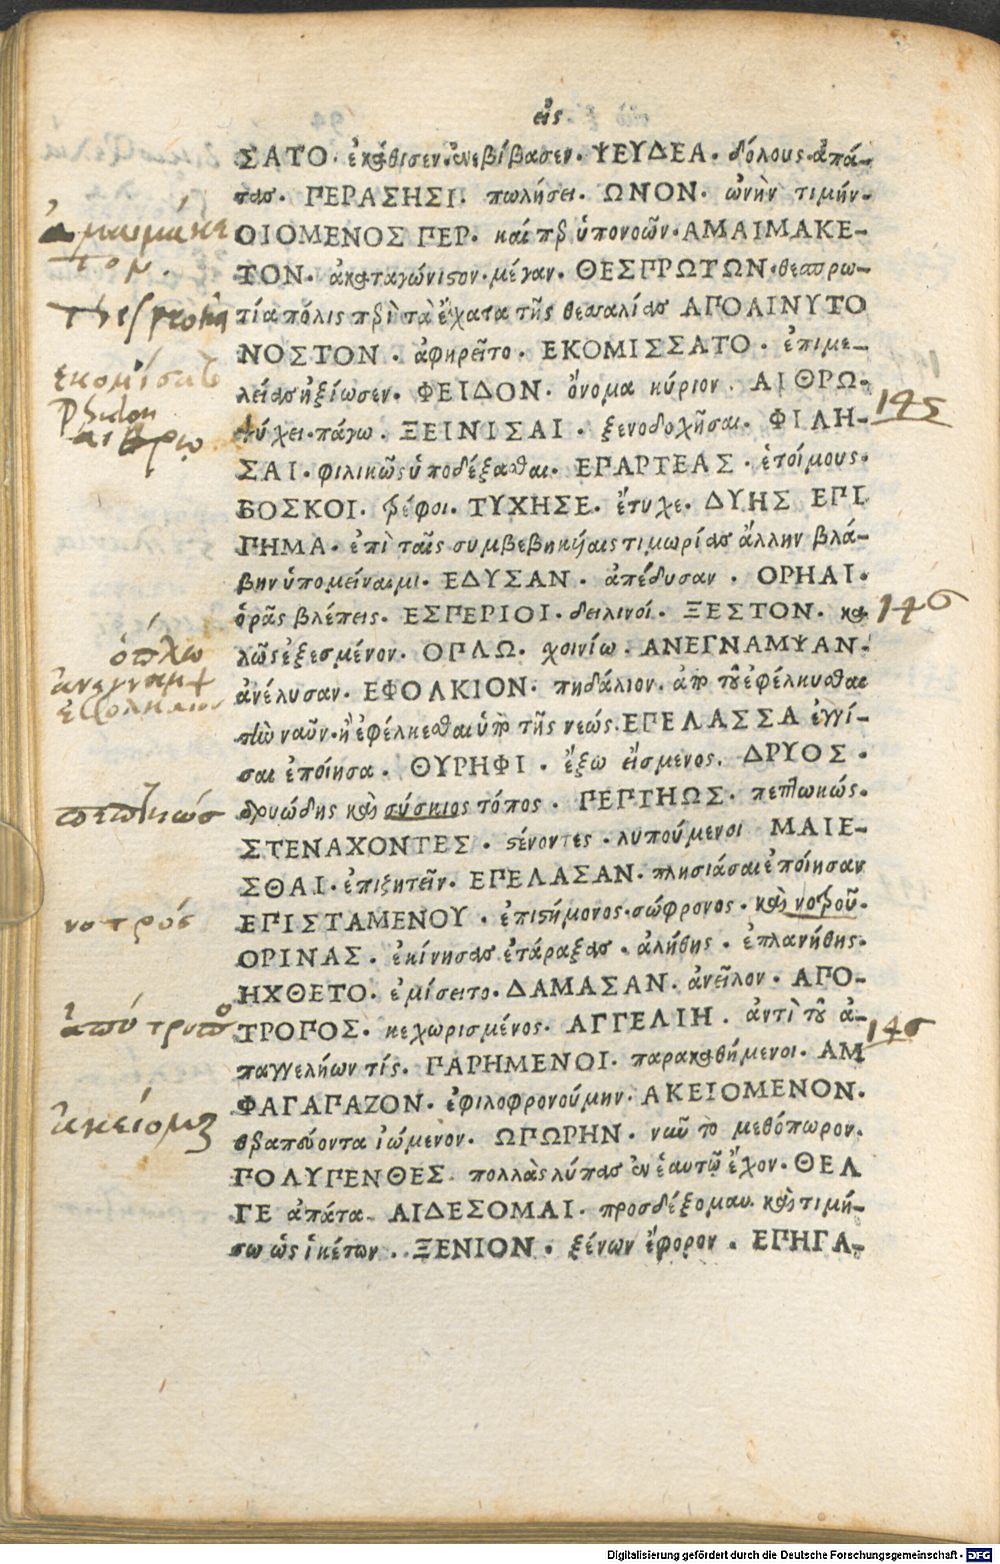 εἰς
ΣΑΤΟ. ἐκάθισεν. ἐνεβίβασεν. ΨΕΥΔΕΑ. δόλους. ἀπά-
τας. ΠΕΡΑΣΗΣΙ. πωλήσει. ΩΝΟΝ. ὠνὴν τιμήν.
ΟΙΟΜΕΝΟΣ ΠΕΡ. καίπερ ὑπονοῶν. ΑΜΑΙΜΑΚΕ-
ΤΟΝ. ἀκαταγώνιστον. μέγαν. ΘΕΣΠΡΩΤΩΝ. θεσπρω-
τία πόλις περὶ τὰ ἔσχατα τῆς θεσσαλίας ΑΠΟΑΙΝΥΤΟ
ΝΟΣΤΟΝ. ἀφηρεῖτο. ΕΚΟΜΙΣΣΑΤΟ. ἐπιμε-
λείας ἠξίωσεν. ΦΕΙΔΟΝ. ὄνομα κύριον. ΑΙΘΡΩ.
ψύχει. πάγω. ΞΕΙΝΙΣΑΙ. ξενοδοχῆσαι. ΦΙΛΗ-
ΣΑΙ. φιλικῶς ὑποδέξασθαι. ΕΠΑΡΤΕΑΣ. ἑτοίμους.
ΒΟΣΚΟΙ. τρέφοι. ΤΥΧΗΣΕ. ἔτυχε. ΔΥΗΣ ΕΠΙ
ΠΗΜΑ. ἐπὶ ταῖς συμβεβηκυίαις τιμωρίας ἄλλην βλά-
βην ὑπομείναιμι. ΕΔΥΣΑΝ. ἀπέδυσαν. ΟΡΗΑΙ.
ὁρᾶς βλέπεις. ΕΣΠΕΡΙΟΙ. δειλινοί. ΞΕΣΤΟΝ. κα
λῶς ἐξεσμένον. ΟΠΛΩ. χοινίω. ΑΝΕΓΝΑΜΨΑΝ.
ἀνέλυσαν. ΕΦΟΛΚΙΟΝ. πηδάλιον. ἀπὸ τοῦ ἐφέλκυσθαι
τὴν ναῦν. ἢ ἐφέλκεσθαι ὑπὸ τῆς νεώς. ΕΠΕΛΑΣΣΑ ἐγγί-
σαι ἐποίησα. ΘΥΡΗΦΙ. ἔξω εἵσμενος. ΔΡΥΟΣ.
δρυώδης καὶ σύσκιος τόπος. ΠΕΠΤΗΩΣ. πεπτωκώς.
ΣΤΕΝΑΧΟΝΤΕΣ. στένοντες. λυπούμενοι ΜΑΙΕ-
ΣΘΑΙ. ἐπιζητεῖν. ΕΠΕΛΑΣΑΝ. πλησιάσαι ἐποίησαν
ΕΠΙΣΤΑΜΕΝΟΥ. ἐπιστήμονος. σώφρονος. καὶ
ΟΡΙΝΑΣ. ἐκίνησας ἐτάραξας. ἀλήθης. ἐπλανήθης.
ΗΧΘΕΤΟ. ἐμίσειτο. ΔΑΜΑΣΑΝ. ἀνεῖλον. ΑΠΟ-
ΤΡΟΠΟΣ. κεχωρισμένος. ΑΓΓΕΛΙΗ. ἀντὶ τοῦ ἀ-
παγγελήων τίς. ΠΑΡΗΜΕΝΟΙ. παρακαθήμενοι. ΑΜ
ΦΑΓΑΠΑΖΟΝ. ἐφιλοφρονούμην. ΑΚΕΙΟΜΕΝΟΝ.
θεραπεύοντα ἰώμενον. ΩΠΩΡΗΝ. νῦν τὸ μεθόπωρον.
ΠΟΛΥΠΕΝΘΕΣ. πολλὰς λύπας ἐν ἑαυτῷ ἔχον. ΘΕΛ
ΓΕ ἀπάτα. ΑΙΔΕΣΟΜΑΙ. προσδέξομαι. καὶ τιμή-
σω ὡς ἱκέτων. ΞΕΝΙΟΝ. ξένων ἔφορον. ΕΠΗΓΑ-
ἀμαιμάκε
τον.
Thesprotia
εκομίσατο
Phidon
αιθρῳ
ὁπλω
ἀνεγναμψ
εφολκιον
πεπτηκώσ
ἀπότροπο
ἀκείομ
145
146
146
Digitalisierung gefördert durch die Deutsche Forschungsgemeinschaft - DFG